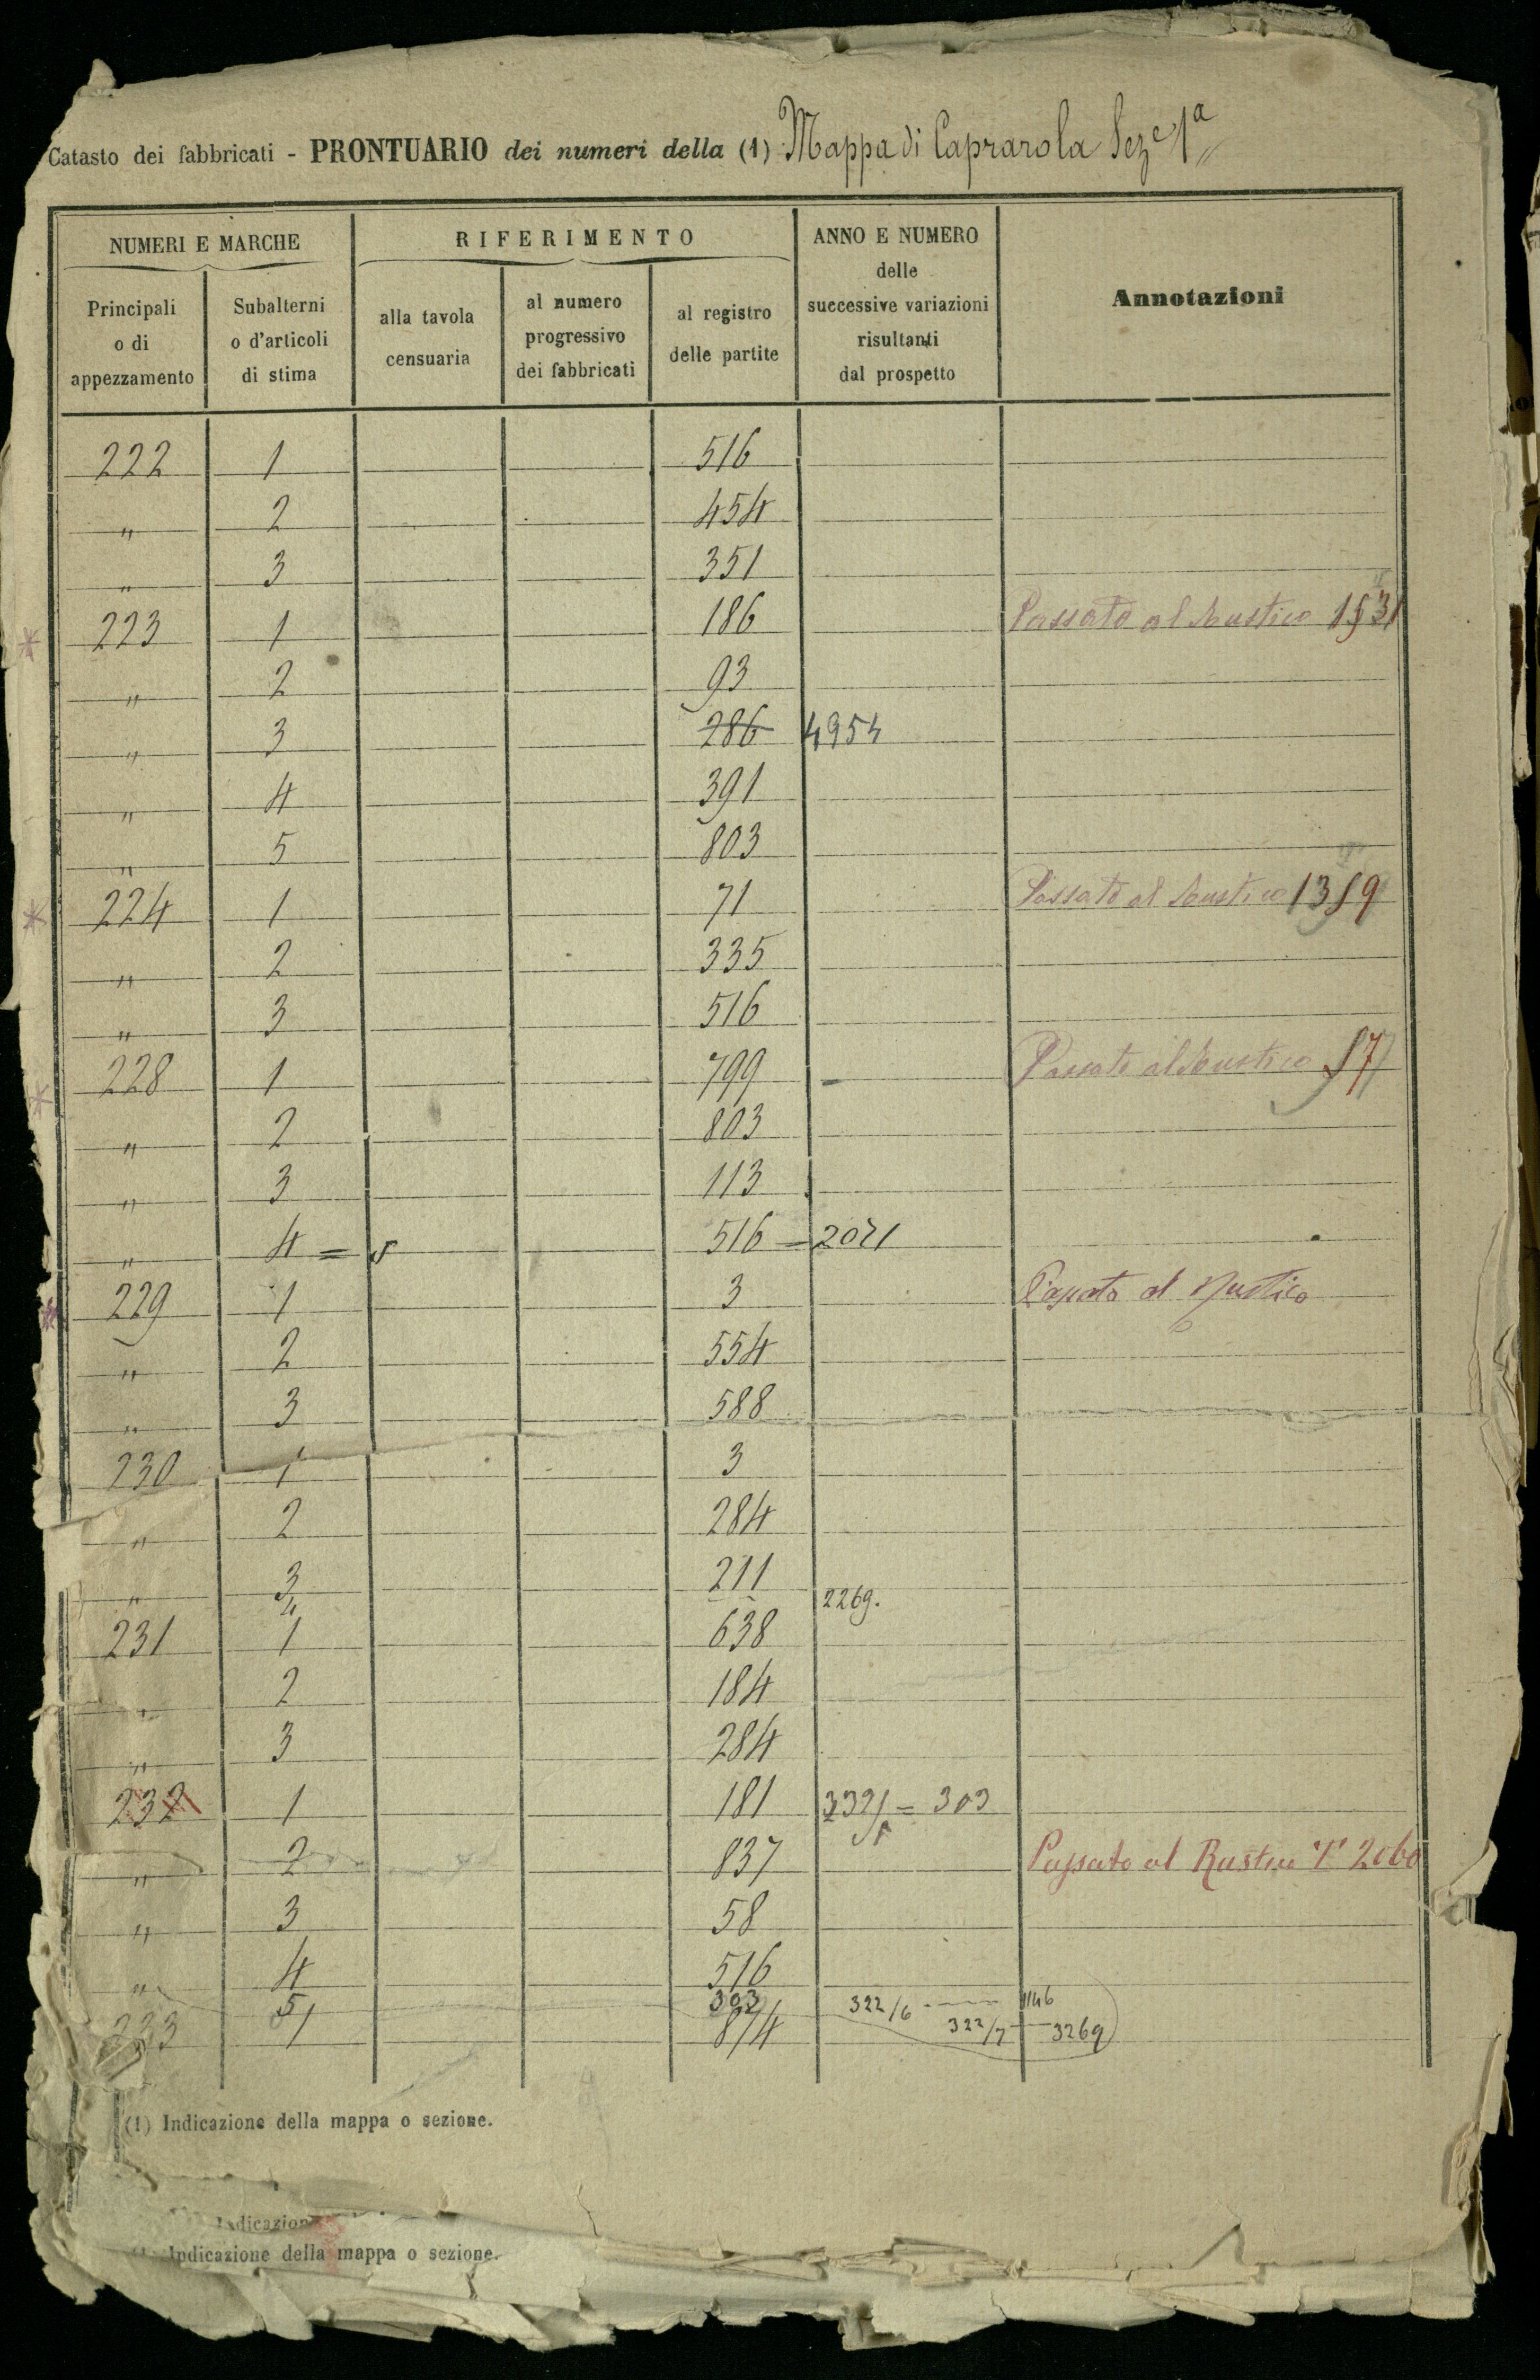 Catasto dei fabbricati - PRONTUARIO dei numeri della (1) Mappa di Caprarola Sez.e 1a
NUMERI E MARCHE RIFERIMENTO ANNO E NUMERO delle successive variazioni risultanti dal prospetto Annotazioni
Principali o di appezzamento Subalterni o d'articoli di stima alla tavola censuaria al numero progressivo dei fabbricati al registro delle partite
222 1 516
" 2 454
" 3 351
223 1 186 Passato al Rustico
" 2 93
" 3 286 4954
" 4 391
" 5 803
224 1 71 Passato al Rustico
" 2 335
" 3 516
228 1 799 Passato al Rustico
" 2 803
" 3 113
" 4 = 516 =
229 1 3 Passato al Rustico
" 2 554
" 3 588
230 1 3
" 2 284
" 3 211
" 2269.
231 1 638
" 2 184
" 3 284
232 1 181 = 303
" 2 837 Passato al Rustico 2060
" 3 58
" 4 516
5 303 322/6 1146
233 1 814 322/7 3269
(1) Indicazione della mappa o sezione.
Indicazion
Indicazione della mappa o sezione.